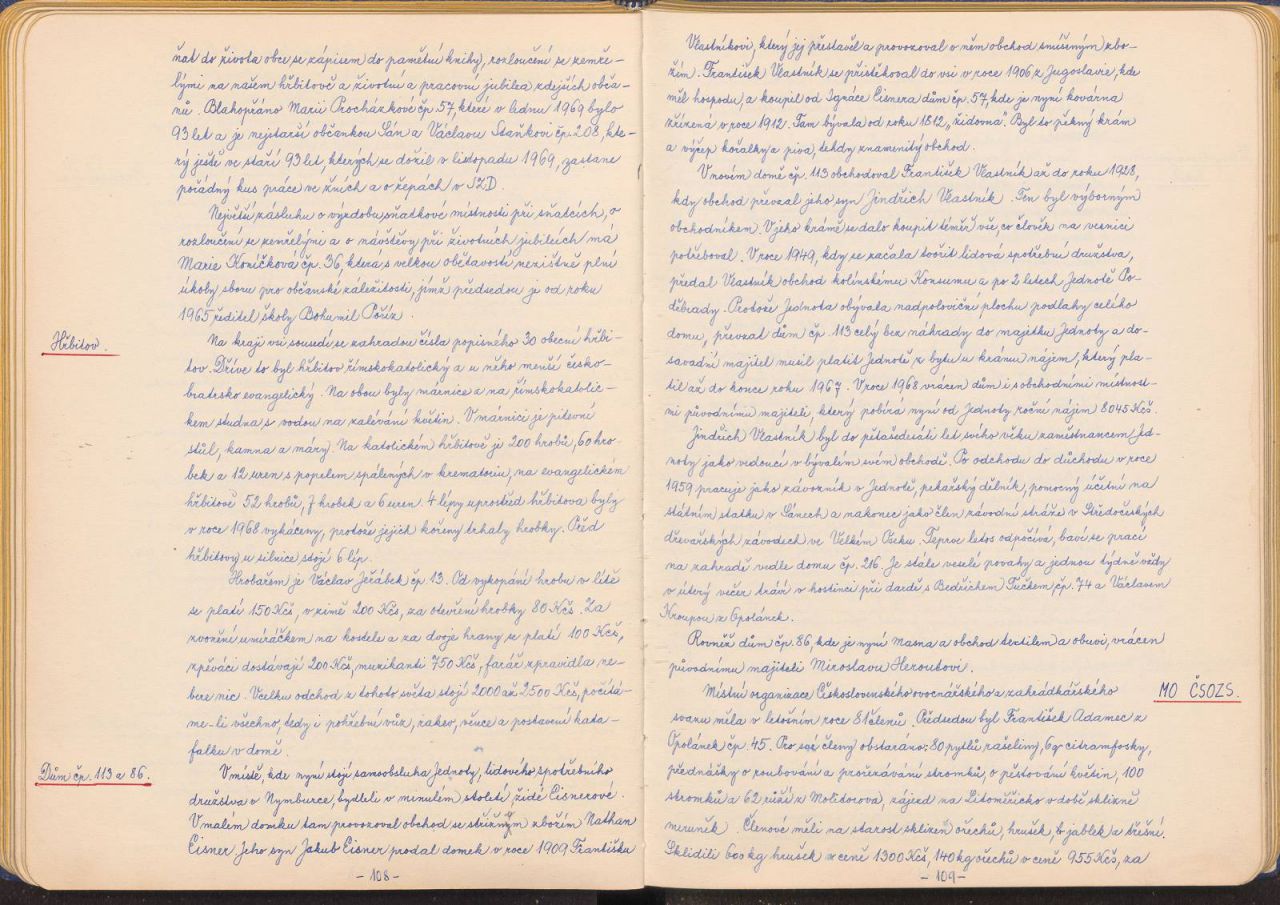 ňat do života obce se zápisem do pamětní knihy, rozloučení se zemře-
lými na našem hřbitově a životní a pracovní jubilea zdejších obča-
nů. Blahopřáno Marii Procházkové čp. 57, které v lednu 1969 bylo
93 let a je nejstarší občankou Sán a Václavu Staňkovi čp. 208, kte-
rý ještě ve stáří 93 let, kterých se dožil v listopadu 1969, zastane
pořádný kus práce ve žních a o řepách v JZD.
Největší zásluhu o výzdobu sňatkové místnosti při sňatcích, o
rozloučení se zemřelými a o návštěvy při životních jubileích má
Marie Koníčková čp. 36, která s velkou obětavostí nezištně plní
úkoly sboru pro občanské záležitosti, jímž předsedou je od roku
1965 ředitel školy Bohumil Pőříz.
Hřbitov.
Na kraji vsi sousedí se zahradou čísla popisného 30 obecní hřbi-
tov. Dříve to byl hřbitov římskokatolický a u něho menší česko-
bratrsko evangelický. Na obou byly márnice a na římskokatolic-
kém studna s vodou na zalévání květin. V márnici je pitevní
stůl, kamna a máry. Na katolickém hřbitově je 200 hrobů, 60 hro-
bek a 12 uren s popelem spálených v krematoriu, na evangelickém
hřbitově 52 hrobů, 7 hrobek a 6 uren. 4 lípy uprostřed hřbitova byly
v roce 1968 vykáceny, protože jejich kořeny trhaly hrobky. Před
hřbitovy u silnice stojí 6 lip.
Hrobařem je Václav Jeřábek čp. 13. Od vykopání hrobu v létě
se platí 150 Kčs, v zimě 200 Kčs, za otevření hrobky 80 Kčs. Za
zvonění umíráčkem na kostele a za dvoje hrany se platí 100 Kčs,
zpěváci dostávají 200 Kčs, muzikanti 750 Kčs, farář zpravidla ne-
bere nic. Vcelku odchod z tohoto světa stojí 2000 až 2500 Kčs, počítá-
me-li všechno, tedy i pohřební vůz, rakev, věnce a postavení kata-
falku v domě.
Dům čp. 113 a 86.
V místě, kde nyní stojí samoobsluha Jednoty, lidového spotřebního
družstva v Nymburce, bydleli v minulém století židé Eisnerové.
V malém domku tam provozoval obchod se střižným zbožím Nathan
Eisner. Jeho syn Jakub Eisner prodal domek v roce 1909 Františku
- 108 -
Vlastníkovi, který jej přestavěl a provozoval v něm obchod smíšeným zbo-
žím. František Vlastník se přistěhoval do vsi v roce 1906 z Jugoslavie, kde
měl hospodu, a koupil od Ignáce Eisnera dům čp. 57, kde je nyní kovárna
zřízená v roce 1912. Tam bývala od roku 1812 „židovna". Byl to pěkný krám
a výčep kořalky a piva, tehdy znamenitý obchod.
V novém domě čp. 113 obchodoval František Vlastník až do roku 1928,
kdy obchod převzal jeho syn Jindřich Vlastník. Ten byl výborným
obchodníkem. V jeho krámě se dalo koupit téměř vše, co člověk na vesnici
potřeboval. V roce 1949, kdy se začala tvořit lidová spotřební družstva,
předal Vlastník obchod kolínskému Konsumu a po 2 letech Jednotě Po-
děbrady. Protože Jednota obývala nadpoloviční plochu podlahy celého
domu, převzat dům čp. 113 celý bez náhrady do majetku Jednoty a do-
savadní majitel musil platit Jednotě z bytu u krámu nájem, který pla-
til až do konce roku 1967. V roce 1968 vrácen dům i s obchodními místnost-
mi původnímu majiteli, který pobírá nyní od Jednoty roční nájem 8045 Kčs.
Jindřich Vlastník byl do pětašedesáti let svého věku zaměstnancem Jed-
noty jako vedoucí v bývalém svém obchodě. Po odchodu do důchodu v roce
1959 pracuje jako závozník v Jednotě, pekařský dělník, pomocný účetní na
státním statku v Sánech a nakonec jako člen závodní stráže v Středočeských
dřevařských závodech ve Velkém Oseku. Teprve letos odpočívá, baví se prací
na zahradě vedle domu čp. 216. Je stále veselé povahy a jednou týdně vždy
v úterý večer tráví v hostinci při dardě s Bedřichem Tučkem, čp. 74 a Václavem
Kroupou z Opolánek.
Rovněž dům čp. 86, kde je nyní masna a obchod textilem a obuví, vrácen
původnímu majiteli Miroslavu Heroutovi.
MO ČSOZS.
Místní organizace Československého ovocnářského a zahrádkářského
svazu měla v letošním roce 81 členů. Předsedou byl František Adamec z
Opolánek čp. 45. Pro své členy obstaráno: 80 pytlů rašeliny, 6 q citramfosky,
přednášky o roubování a prořezávání stromků, o pěstování květin, 100
stromků a 62 růží z Molitorova, zájezd na Litoměřicko v době sklizně
meruněk. Členové měli na starost sklizeň ořechů, hrušek, jablek a třešní.
Sklidili 600 kg hrušek v ceně 1300 Kčs, 140 kg ořechů v ceně 955 Kčs, za
- 109 -